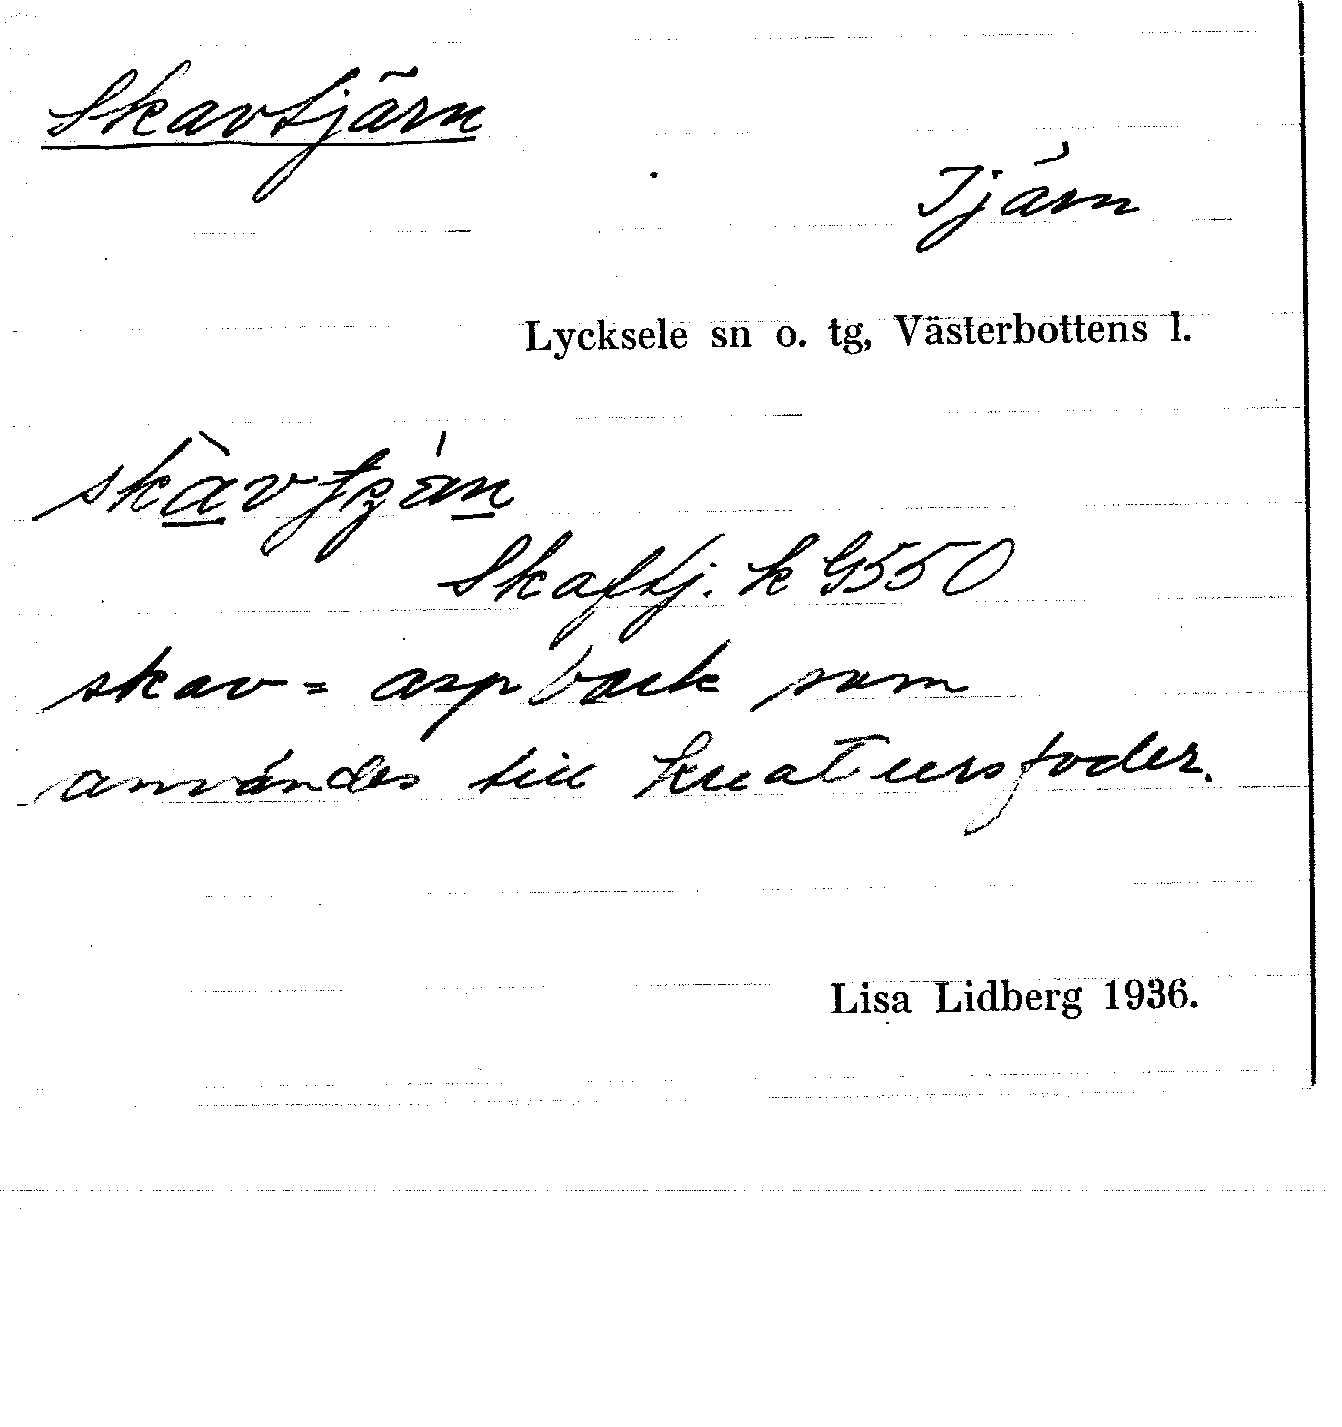 Skavtjärn
Tjärn
Lycksele sn o. tg, Västerbottens l.
Skaftj. k G550
skav = aspbark som
användes till kreatursfoder.
Lisa Lidberg 1936.